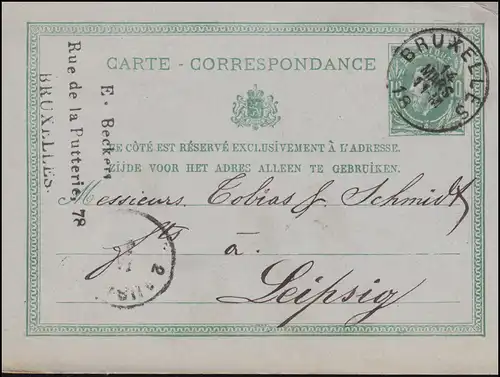 CARTE - CORRESPONDANCE
E. Beckers
Rue de la Putterie, 78
BRUXELLES.
BRUXELLES
14
MARS
18
CE CÔTÉ EST RÉSERVÉ EXCLUSIVEMENT À L'ADRESSE.
ZIJDE VOOR HET ADRES ALLEEN TE GEBRUIKEN.
Messieurs Tobias & Schmidt
à
Leipsig